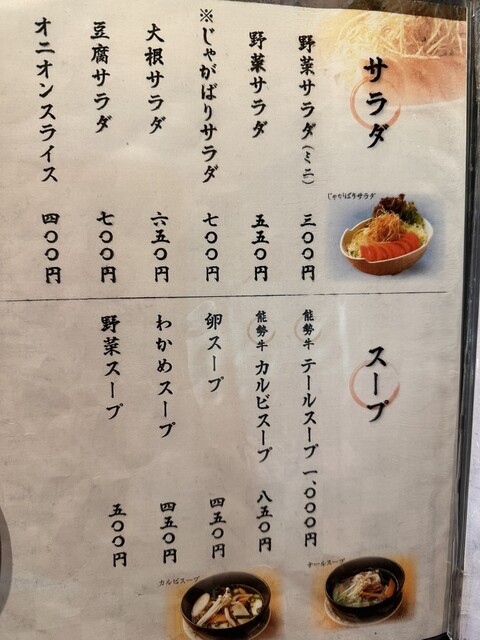 サラダ
野菜サラダ(ミニ) 三〇〇円
野菜サラダ 五五〇円
※じゃがばりサラダ 七〇〇円
大根サラダ 六五〇円
豆腐サラダ 七〇〇円
オニオンスライス 四〇〇円
じゃがばりサラダ
スープ
能勢牛 テールスープ 一、〇〇〇円
能勢牛 カルビスープ 八五〇円
卵スープ 四五〇円
わかめスープ 四五〇円
野菜スープ 五〇〇円
テールスープ
カルビスープ